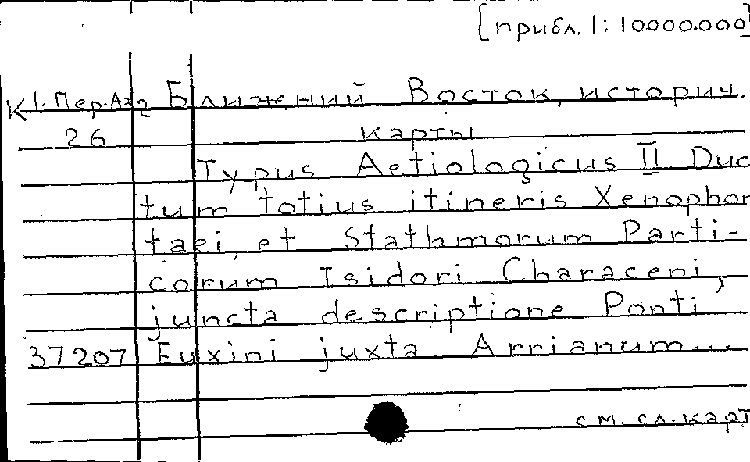 [прибл. 1:10000.000]
К 1-Пер.Аз2 Ближний Восток, историч.
26 карты
Typus Aetiologicus II Duc
tum totius itineris Xenophon
taei, et Stathmorum Parti-
corum Isidori Characeni,
juncta descriptione Ponti
37207 Euxini juxta Arrianum...
см. сл. карт